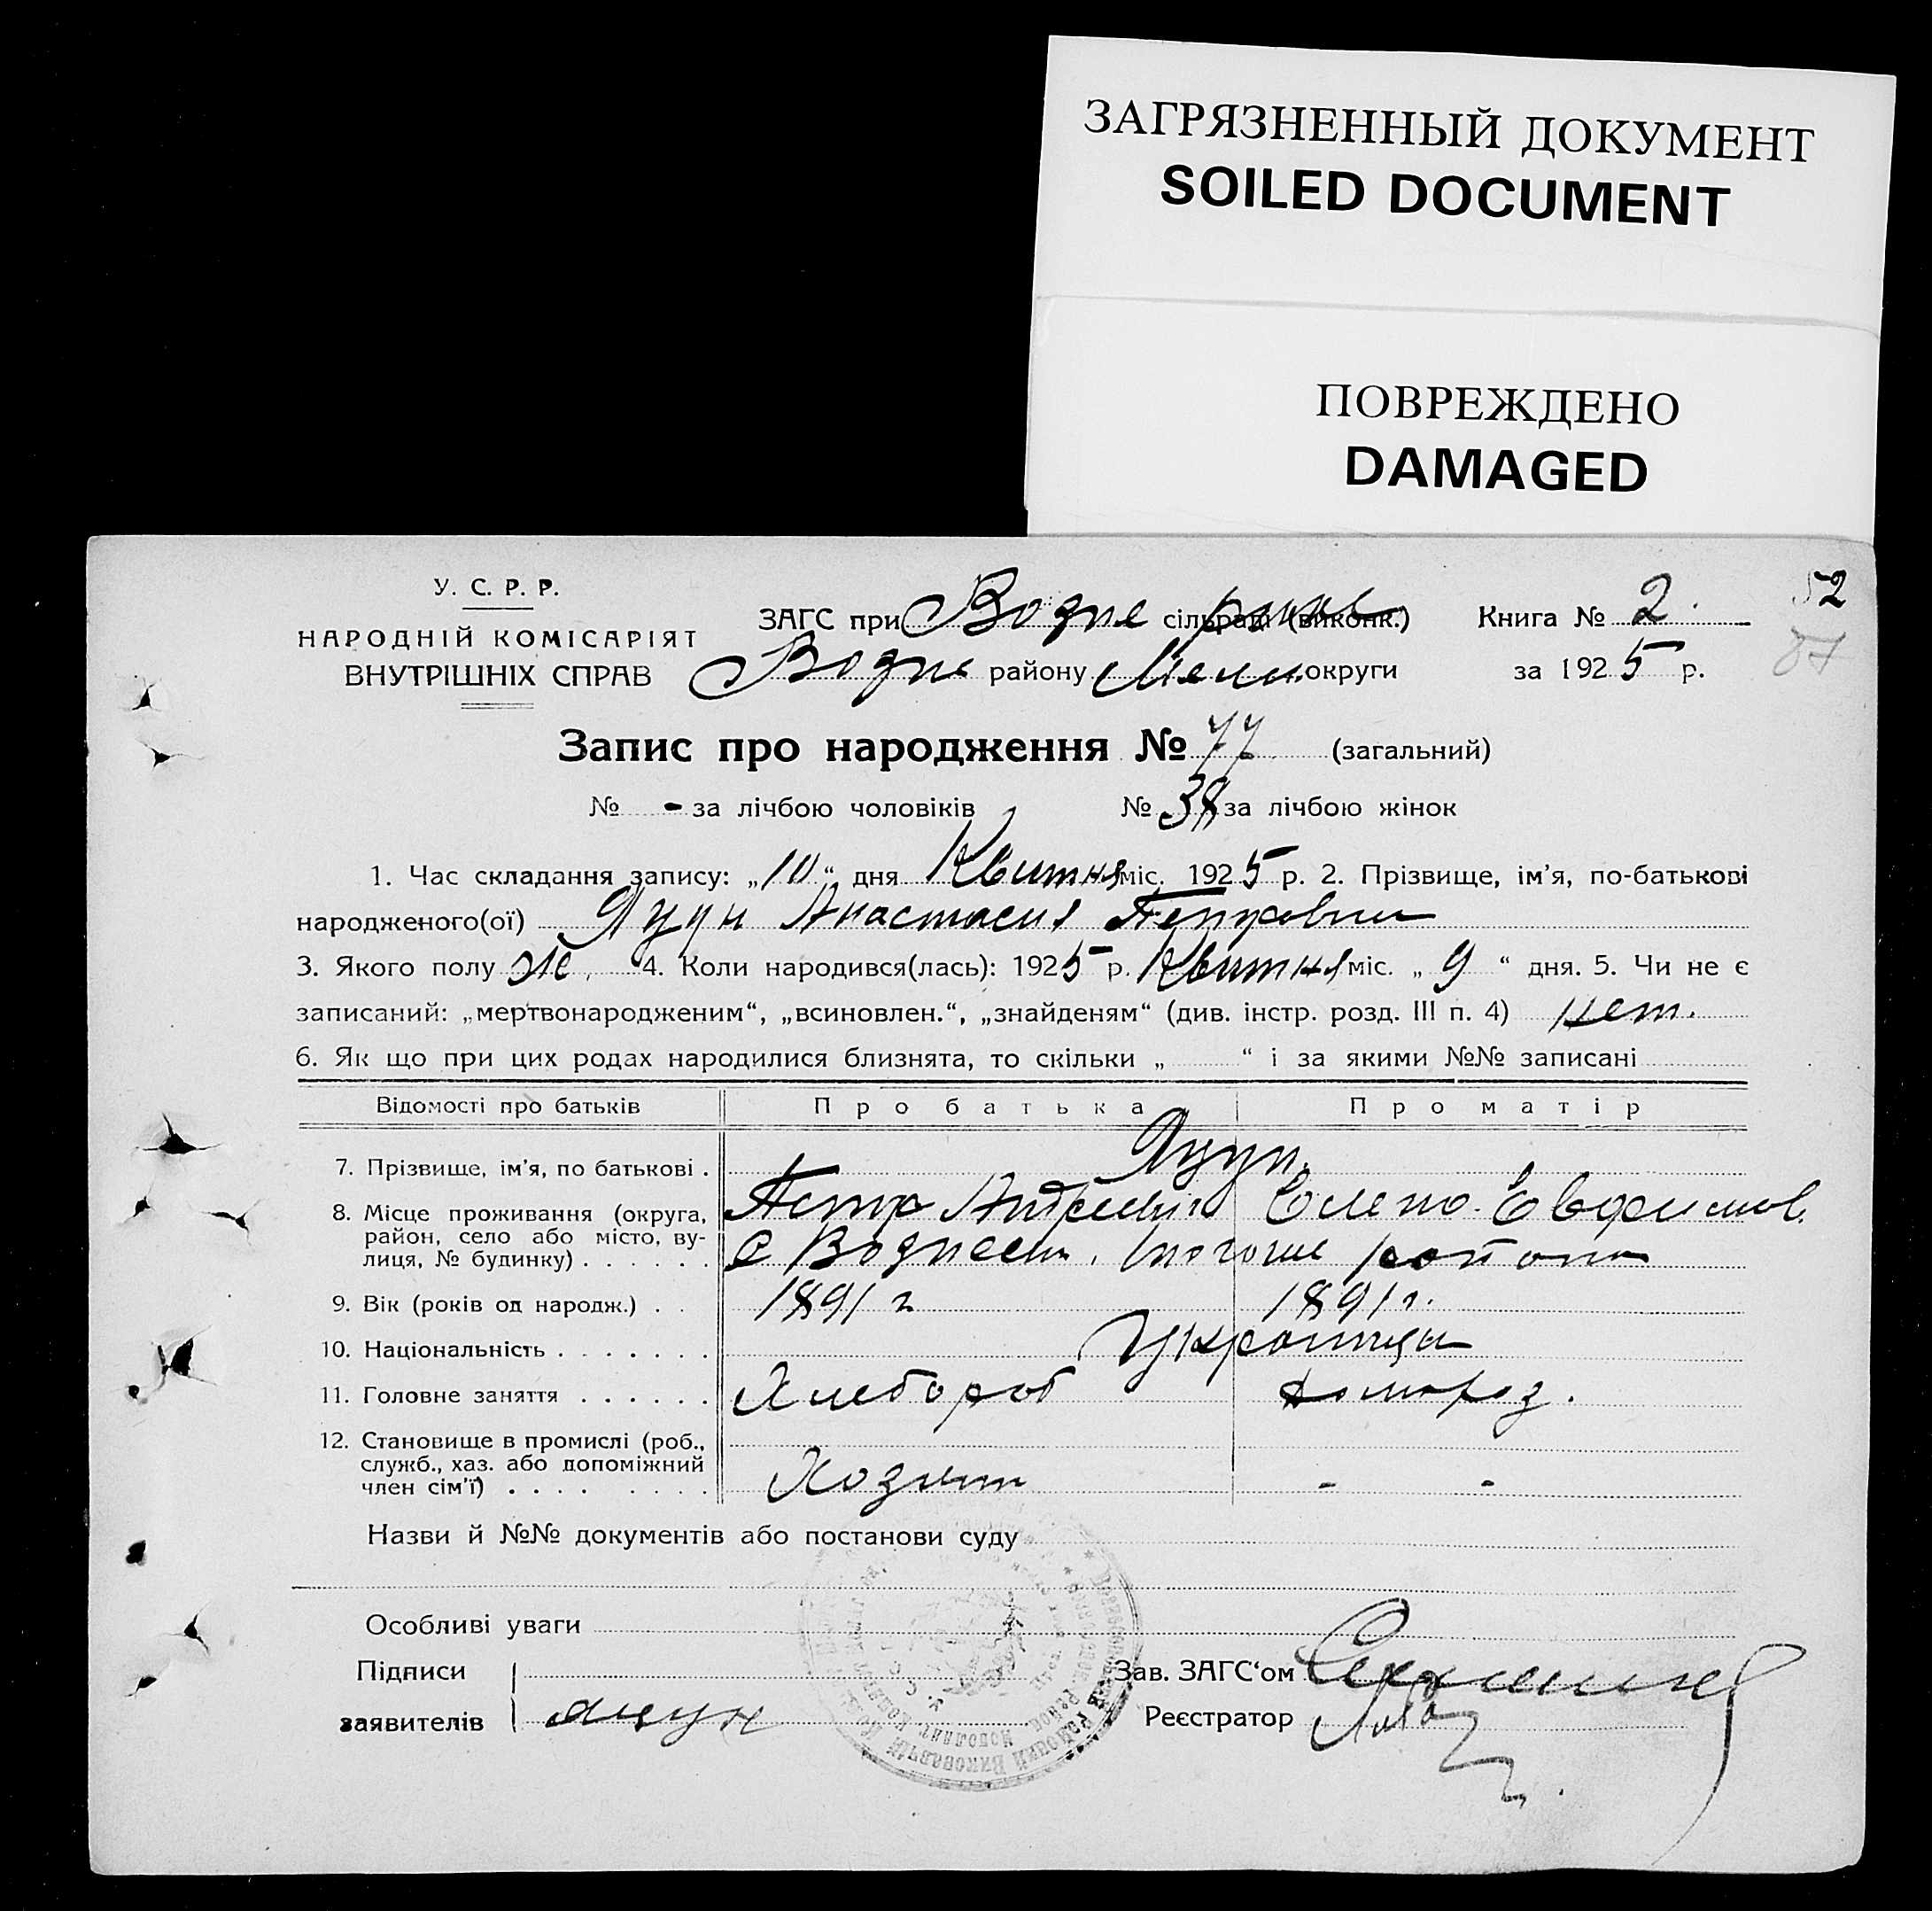 ЗАГРЯЗНЕННЫЙ ДОКУМЕНТ
SOILED DOCUMENT
ПОВРЕЖДЕНО
DAMAGED
52
У. С. Р. Р.
НАРОДНІЙ КОМІСАРІЯТ
ВНУТРІШНІХ СПРАВ
ЗАГС при Возне сільраді (виконк.) Книга № 2.
Возне району Мели. округи за 1925 р.
Запис про народження № 77 (загальний)
№ - за лічбою чоловіків № 38 за лічбою жінок
1. Час складання запису: „10“ дня Квитня міс. 1925 р. 2. Прізвище, ім’я, по-батькові
народженого(ої) Яцун Анастасия Петровна
3. Якого полу Же. 4. Коли народився(лась): 1925 р. Квитня міс. „9“ дня. 5. Чи не є
записаний: „мертвонародженим“, „всиновлен.“, „знайденям“ (див. інстр. розд. III п. 4) нет.
6. Як що при цих родах народилися близнята, то скільки „ “ і за якими №№ записані
Відомості про батьків Про батька Про матір
7. Прізвище, ім’я, по батькові . Яцун.
8. Місце проживання (округа, Петр Андреевич Елена Евфимов.
район, село або місто, ву-
лиця, № будинку) . . . . . . с Вознесен. того же района
9. Вік (років од народж.) . . 1891 г 1891 г.
10. Національність . . . . . . . Украинцы
11. Головне заняття . . . . . . Хлебороб домохоз.
12. Становище в промислі (роб.,
служб., хаз. або допоміжний
член сім’ї) . . . . . . . . Хозяин - -
Назви й №№ документів або постанови суду
Особливі уваги
Підписи
заявителів Яцун
Зав. ЗАГС‘ом
Реєстратор